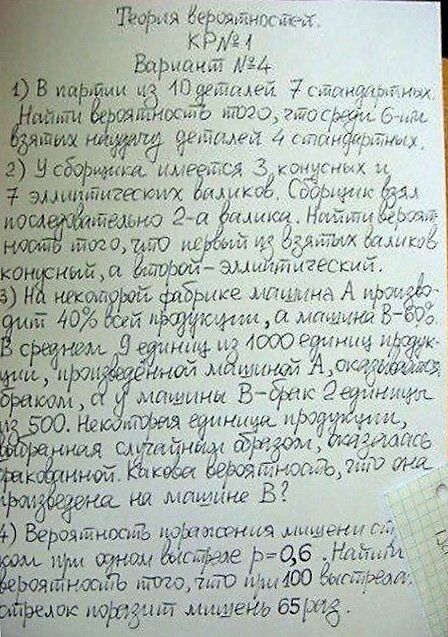 Теория вероятностей.
КР№1
Вариант №4
1) В партии из 10 деталей 7 стандартных.
Найти вероятность того, что среди 6-ти
взятых наудачу деталей 4 стандартных.
2) У сборщика имеется 3 конусных и
7 эллиптических валиков. Сборщик взял
последовательно 2-а валика. Найти вероят-
ность того, что первый из взятых валиков
конусный, а второй - эллиптический.
3) На некоторой фабрике машина А произво-
дит 40% всей продукции, а машина В-60%.
В среднем, 9 единиц из 1000 единиц продук-
ции, произведённой машиной А, оказывается
браком, а у машины В-брак 2 единицы
из 500. Некоторая единица продукции,
выбранная случайным образом, оказалась
бракованной. Какова вероятность, что она
произведена на машине В?
4) Вероятность поражения мишени ст
ком при одном выстреле p=0,6. Найти
вероятность того, что при 100 выстрела
стрелок поразит мишень 65 раз.